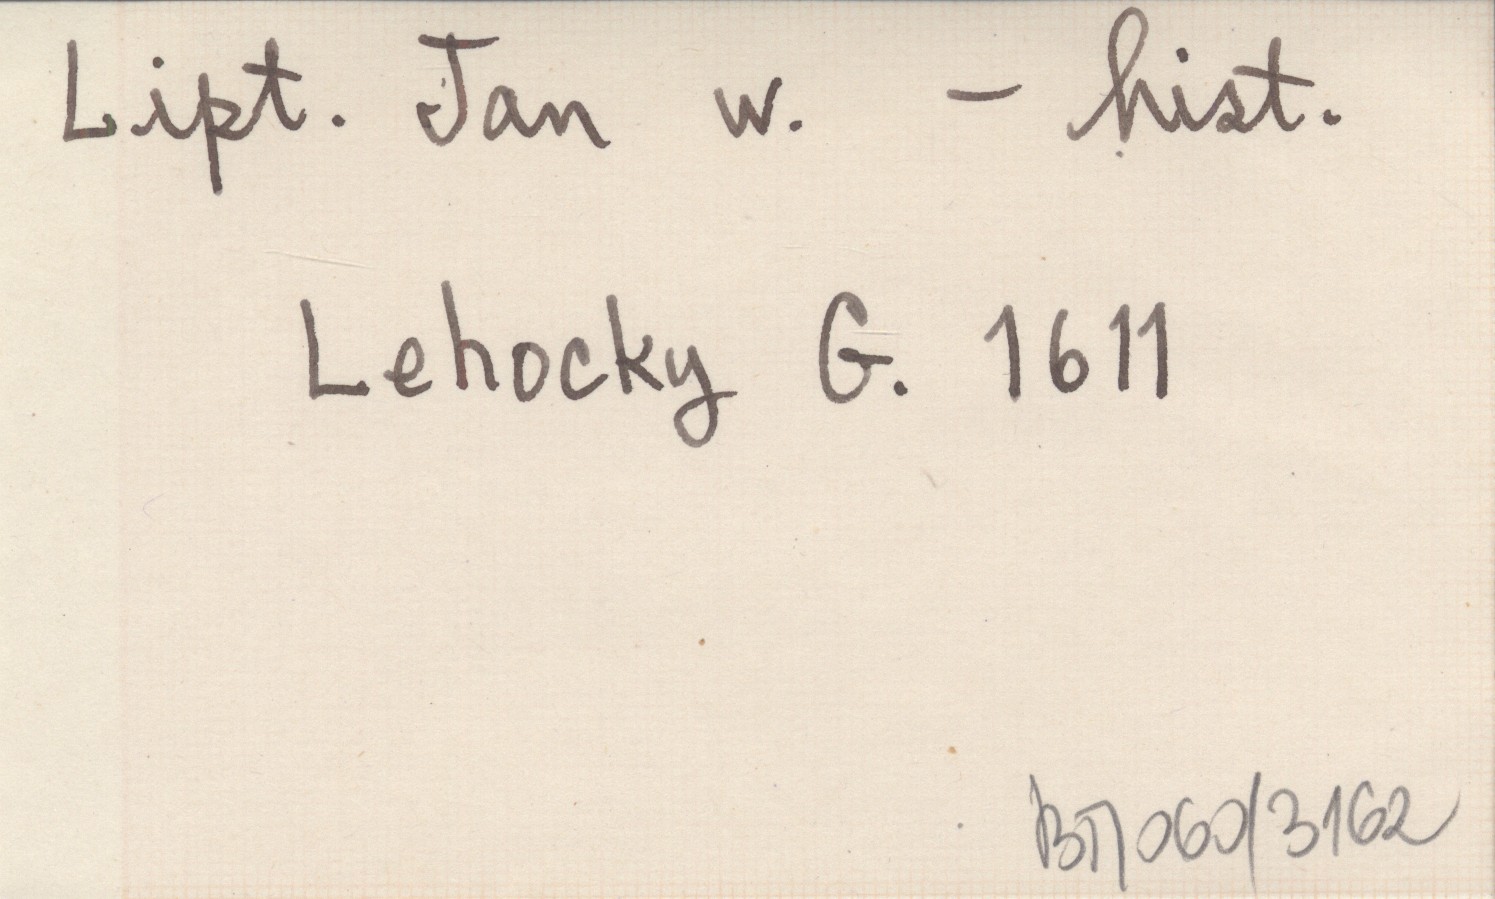 Lipt. Jan w. - hist.
Lehocky G. 1611
060/3162